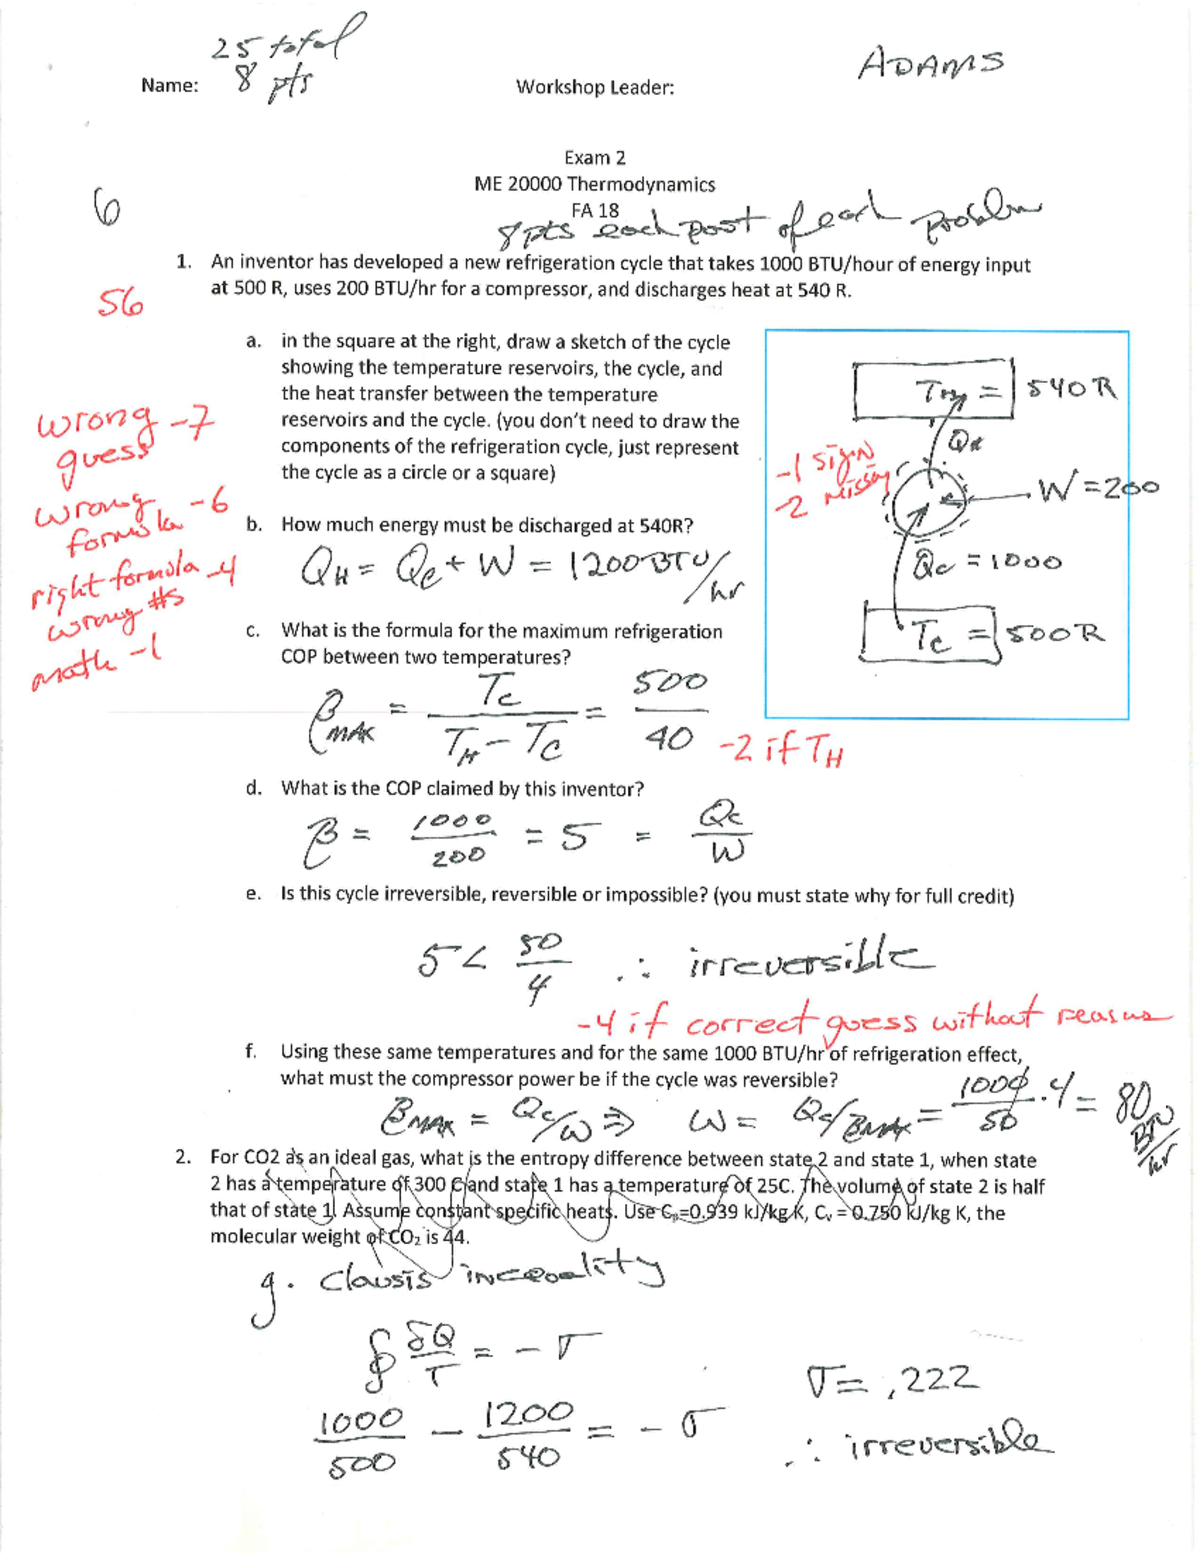 25 total
Name: 8 pts Workshop Leader: ADAMS
Exam 2
ME 20000 Thermodynamics
FA 18
6
8 pts each part of each problem
1. An inventor has developed a new refrigeration cycle that takes 1000 BTU/hour of energy input
at 500 R, uses 200 BTU/hr for a compressor, and discharges heat at 540 R.
56
a. in the square at the right, draw a sketch of the cycle
showing the temperature reservoirs, the cycle, and
the heat transfer between the temperature
reservoirs and the cycle. (you don't need to draw the
components of the refrigeration cycle, just represent
the cycle as a circle or a square)
TH = 540 R
QH
-1 sign
-2 missing
W = 200
QC = 1000
TC = 500 R
wrong -7
guess
wrong -6
formula
right formula -4
wrong #s
math -1
b. How much energy must be discharged at 540R?
QH = QC + W = 1200 BTU/hr
c. What is the formula for the maximum refrigeration
COP between two temperatures?
βMAX = TC / (TH - TC) = 500 / 40
-2 if TH
d. What is the COP claimed by this inventor?
β = 1000 / 200 = 5 = QC / W
e. Is this cycle irreversible, reversible or impossible? (you must state why for full credit)
5 < 50 / 4 ∴ irreversible
-4 if correct guess without reason
f. Using these same temperatures and for the same 1000 BTU/hr of refrigeration effect,
what must the compressor power be if the cycle was reversible?
βMAX = QC/W ⇒ W = QC/βMAX = 1000 / 50 · 4 = 80 BTU/hr
2. For CO2 as an ideal gas, what is the entropy difference between state 2 and state 1, when state
2 has a temperature of 300 C and state 1 has a temperature of 25C. The volume of state 2 is half
that of state 1. Assume constant specific heats. Use Cp=0.939 kJ/kg K, Cv = 0.750 kJ/kg K, the
molecular weight of CO2 is 44.
g. Clausis inequality
∮ δQ / T = - σ
1000 / 500 - 1200 / 540 = - σ
σ = .222
∴ irreversible